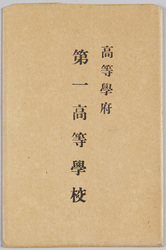 高等學府
第一高等學校